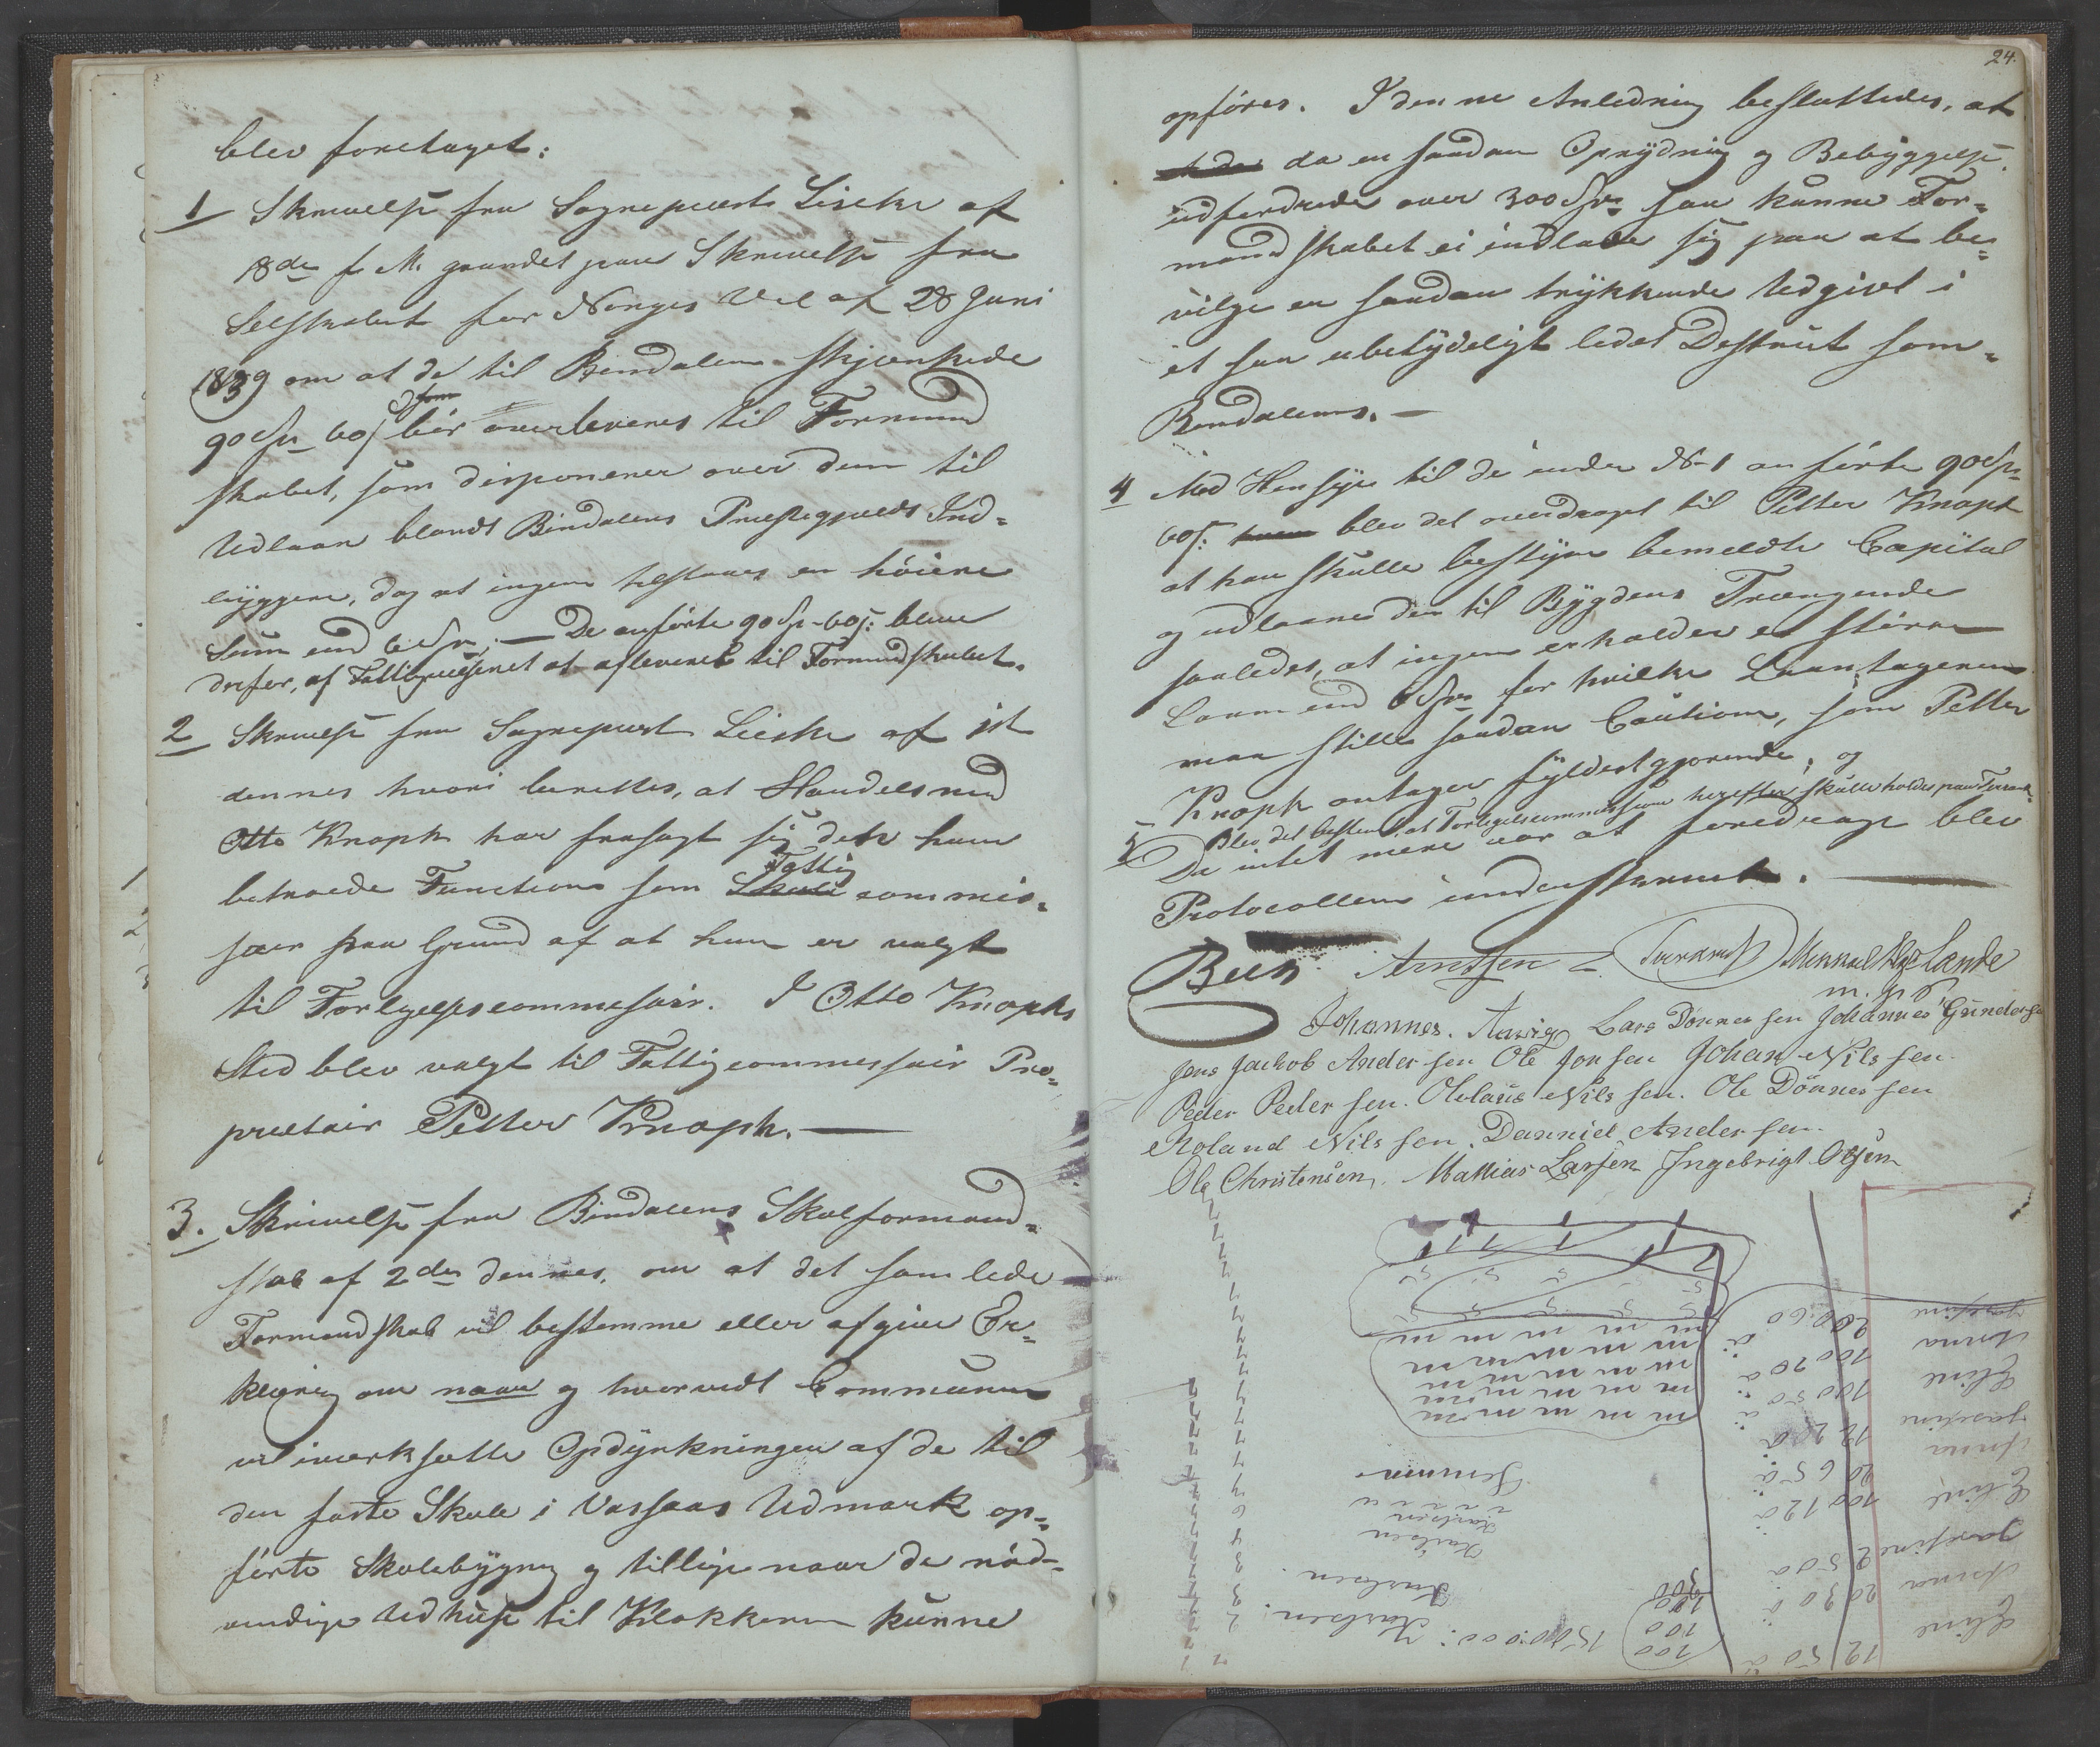 blev foretaget:
1 Skrivelse fra Sognepræst Liscke af
18de f. M. grundet paa Skrivelse fra
Selskabet for Norges Vel af 28 Juni
1839 om at de til Bindalen skjænkede
90 Spd 60 s bør overleveres til Formand
skabet, som disponerer over dem til
Udlaan blandt Bindalens Præstegjælds Ind=
byggere, dog at ingen tilstaaes en høiere
Sum end 6 Spd. — De anførte 90 Sp. 60 s: blive
derfor, af Fattigvæsenet at afleveres til Formandskabet.
2 Skrivelse fra Sognepræst Liscke af 1ste
dennes hvori berettes, at Handelsmd
Otto Knoph har frasagt sig den ham
betroede Function som Fattig commis=
sær paa Grund af at han er valgt
til Forligelsescommissair. I Otto Knophs
Sted blev valgt til Fattigcommissair Pro=
prietair Petter Knoph. —
3. Skrivelse fra Bindalens Skoleformand=
skab af 2den dennes, om at det samlede
Formandskab vil bestemme eller afgive Er=
klæring om naar og hvorvidt Communen
vil iværksætte Opdyrkningen af de til
den faste Skole i Vassaas Udmark op=
førte Skolebygng og tillige naar de nød=
vendige Udhuse til Klokkeren kunne
24.
opføres. I denne Anledning besluttedes, at
da en saadan Oprydning og Bebyggelse
udfordrede over 300 Spd saa kunne For=
mandskabet ei indlade sig paa at be=
vilge en saadan trykkende Udgivt i
et saa ubetydeligt lidet Destrict som
Bindalens. —
4 Med Hensyn til de under No 1 anførte 90 Sp
60 s: blev det overdraget til Petter Knoph
at han skulle bestyre bemeldte Capital
og udlaane den til Bygdens Trængende
saaledes, at ingen erholder et større
Laan end 6 Spd for hvilke Laantageren
maa stille saadan Caution, som Petter
Knoph antager fyldestgjørende, og
5 Blev det bestemt, at Forligelsescommissionen herefter skulle holdes paa Terraak.
Da intet mere var at foredrage blev
Protocollen underskrevet. —
Beck Arntsen Mikkael Helgelande
m. p. P.
Johannes. Aavig Lars Dønnesen Johannes Gundersen
Jens Jachob Andersen Ole Jonsen Johan Nilssen
Peder Pedersen. Olelaus Nilssen. Ole Dønnessen
Roland Nilssen. Danniel Andersen.
Ole Christensen. Mattias Larsen Ingebrigt Olsen
Josefine
Anna
Eline
Josefine
Anna
Eline
Josefine
Anna
Eline
Karlsen
Karlsen
Karlsen
Karlsen